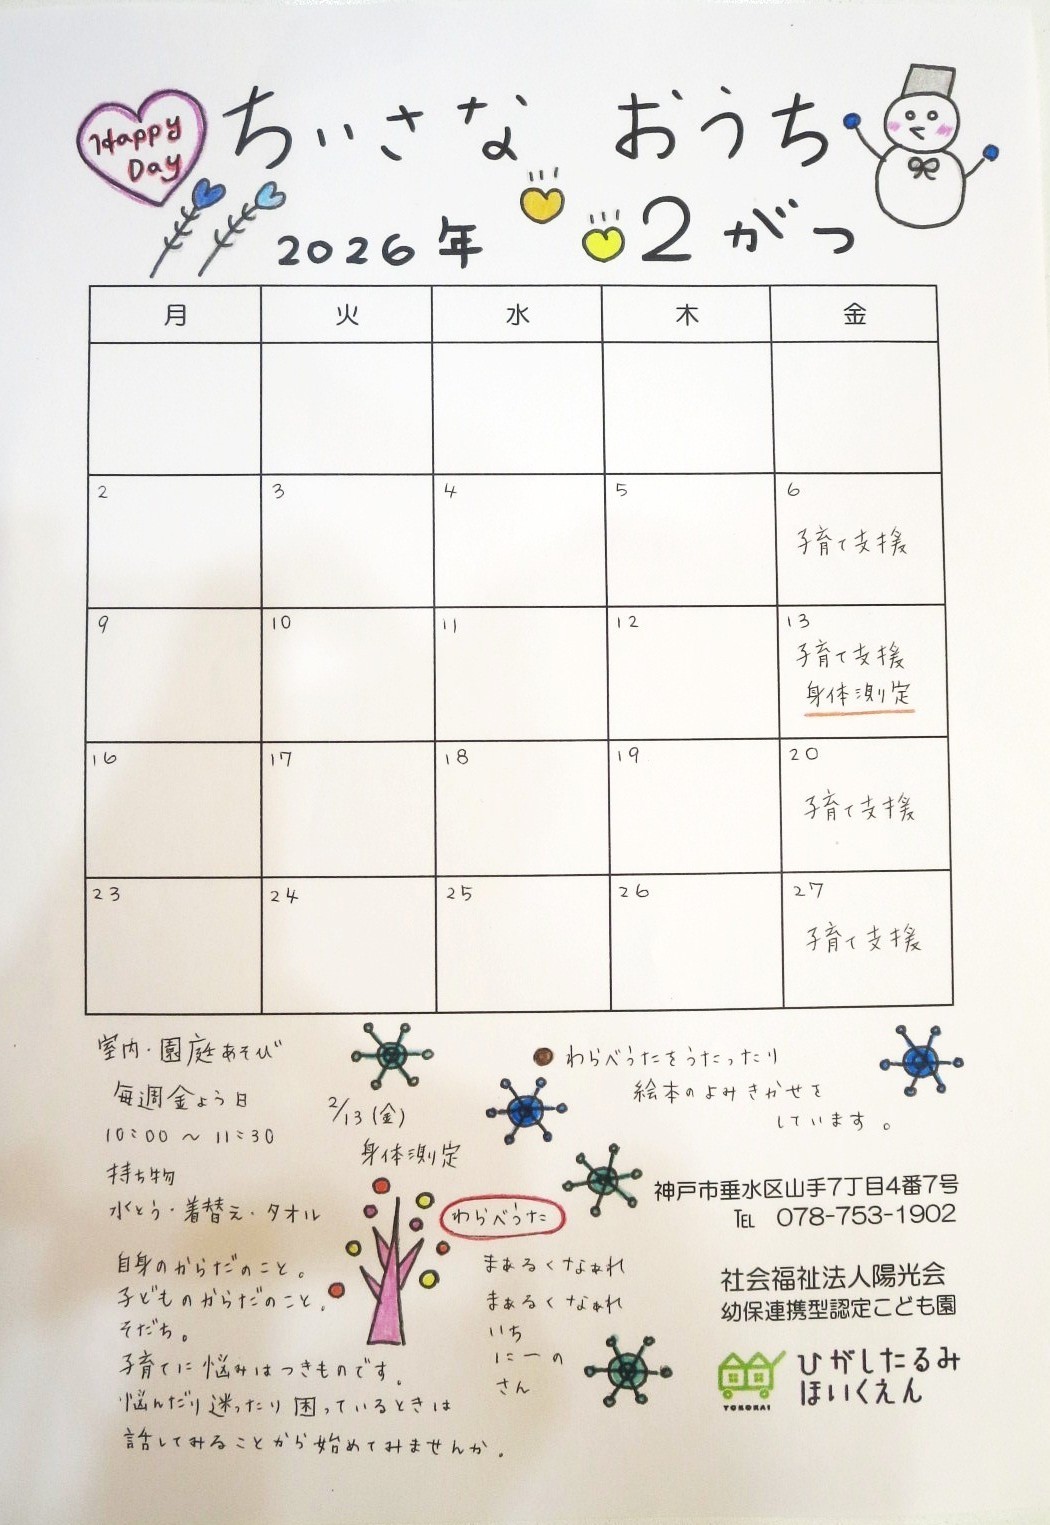 Happy
Day
ちいさな おうち
2026年 2がつ
月 火 水 木 金
2 3 4 5 6
子育て支援
9 10 11 12 13
子育て支援
身体測定
16 17 18 19 20
子育て支援
23 24 25 26 27
子育て支援
室内・園庭あそび
毎週金よう日
10:00～11:30
持ち物
水とう・着替え・タオル
2/13(金)
身体測定
わらべうたをうたったり
絵本のよみきかせを
しています。
自身のからだのこと。
子どものからだのこと。
そだち。
子育てに悩みはつきものです。
悩んだり迷ったり困っているときは
話してみることから始めてみませんか。
わらべうた
まぁるくなぁれ
まぁるくなぁれ
いち
にーの
さん
神戸市垂水区山手7丁目4番7号
TEL 078-753-1902
社会福祉法人陽光会
幼保連携型認定こども園
ひがしたるみ
ほいくえん
YOKOKAI